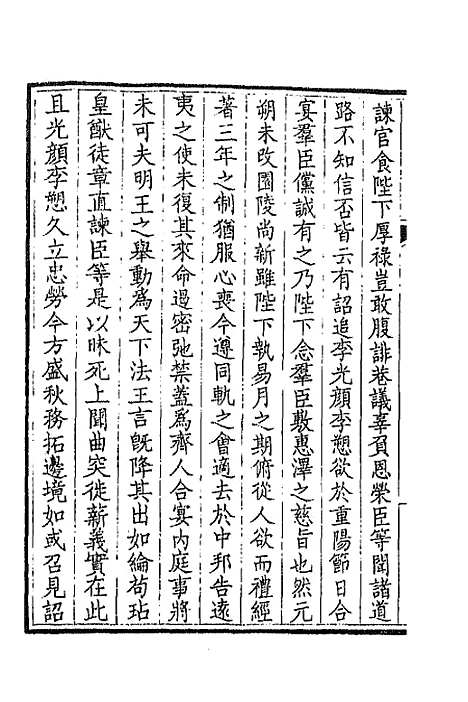 諫官食陛下厚祿豈敢腹誹巷議辜負恩榮臣等聞諸道
路不知信否皆云有詔追李光顔李愬欲於重陽節日合
宴羣臣儻誠有之乃陛下念羣臣敷惠澤之慈旨也然元
朔未改園陵尚新雖陛下執易月之期俯從人欲而禮經
著三年之制猶服心喪今遵同軌之會適去於中邦告遠
夷之使未復其來命遏密弛禁蓋爲齊人合宴内庭事將
未可夫明王之舉動爲天下法王言旣降其出如綸苟玷
皇猷徒章直諫臣等是以昧死上聞曲突徙薪義實在此
且光顔李愬久立忠勞今方盛秋務拓邊境如或召見詔